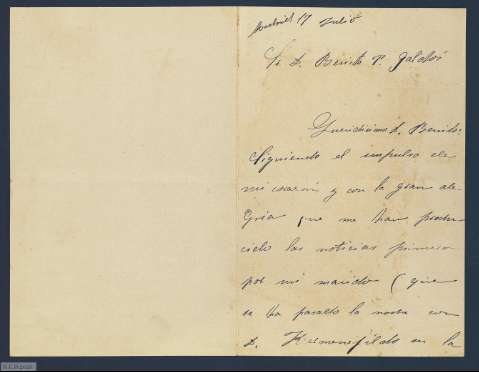 Madrid 17 Julio
Sr. D. Benito P. Galdós
Queridísimo D. Benito:
Siguiendo el impulso de
mi corazón y con la gran ale-
gria que me han produ-
cido las noticias primero
por mi marido (que
se ha pasado la noche con
D. Hermenejildo en la